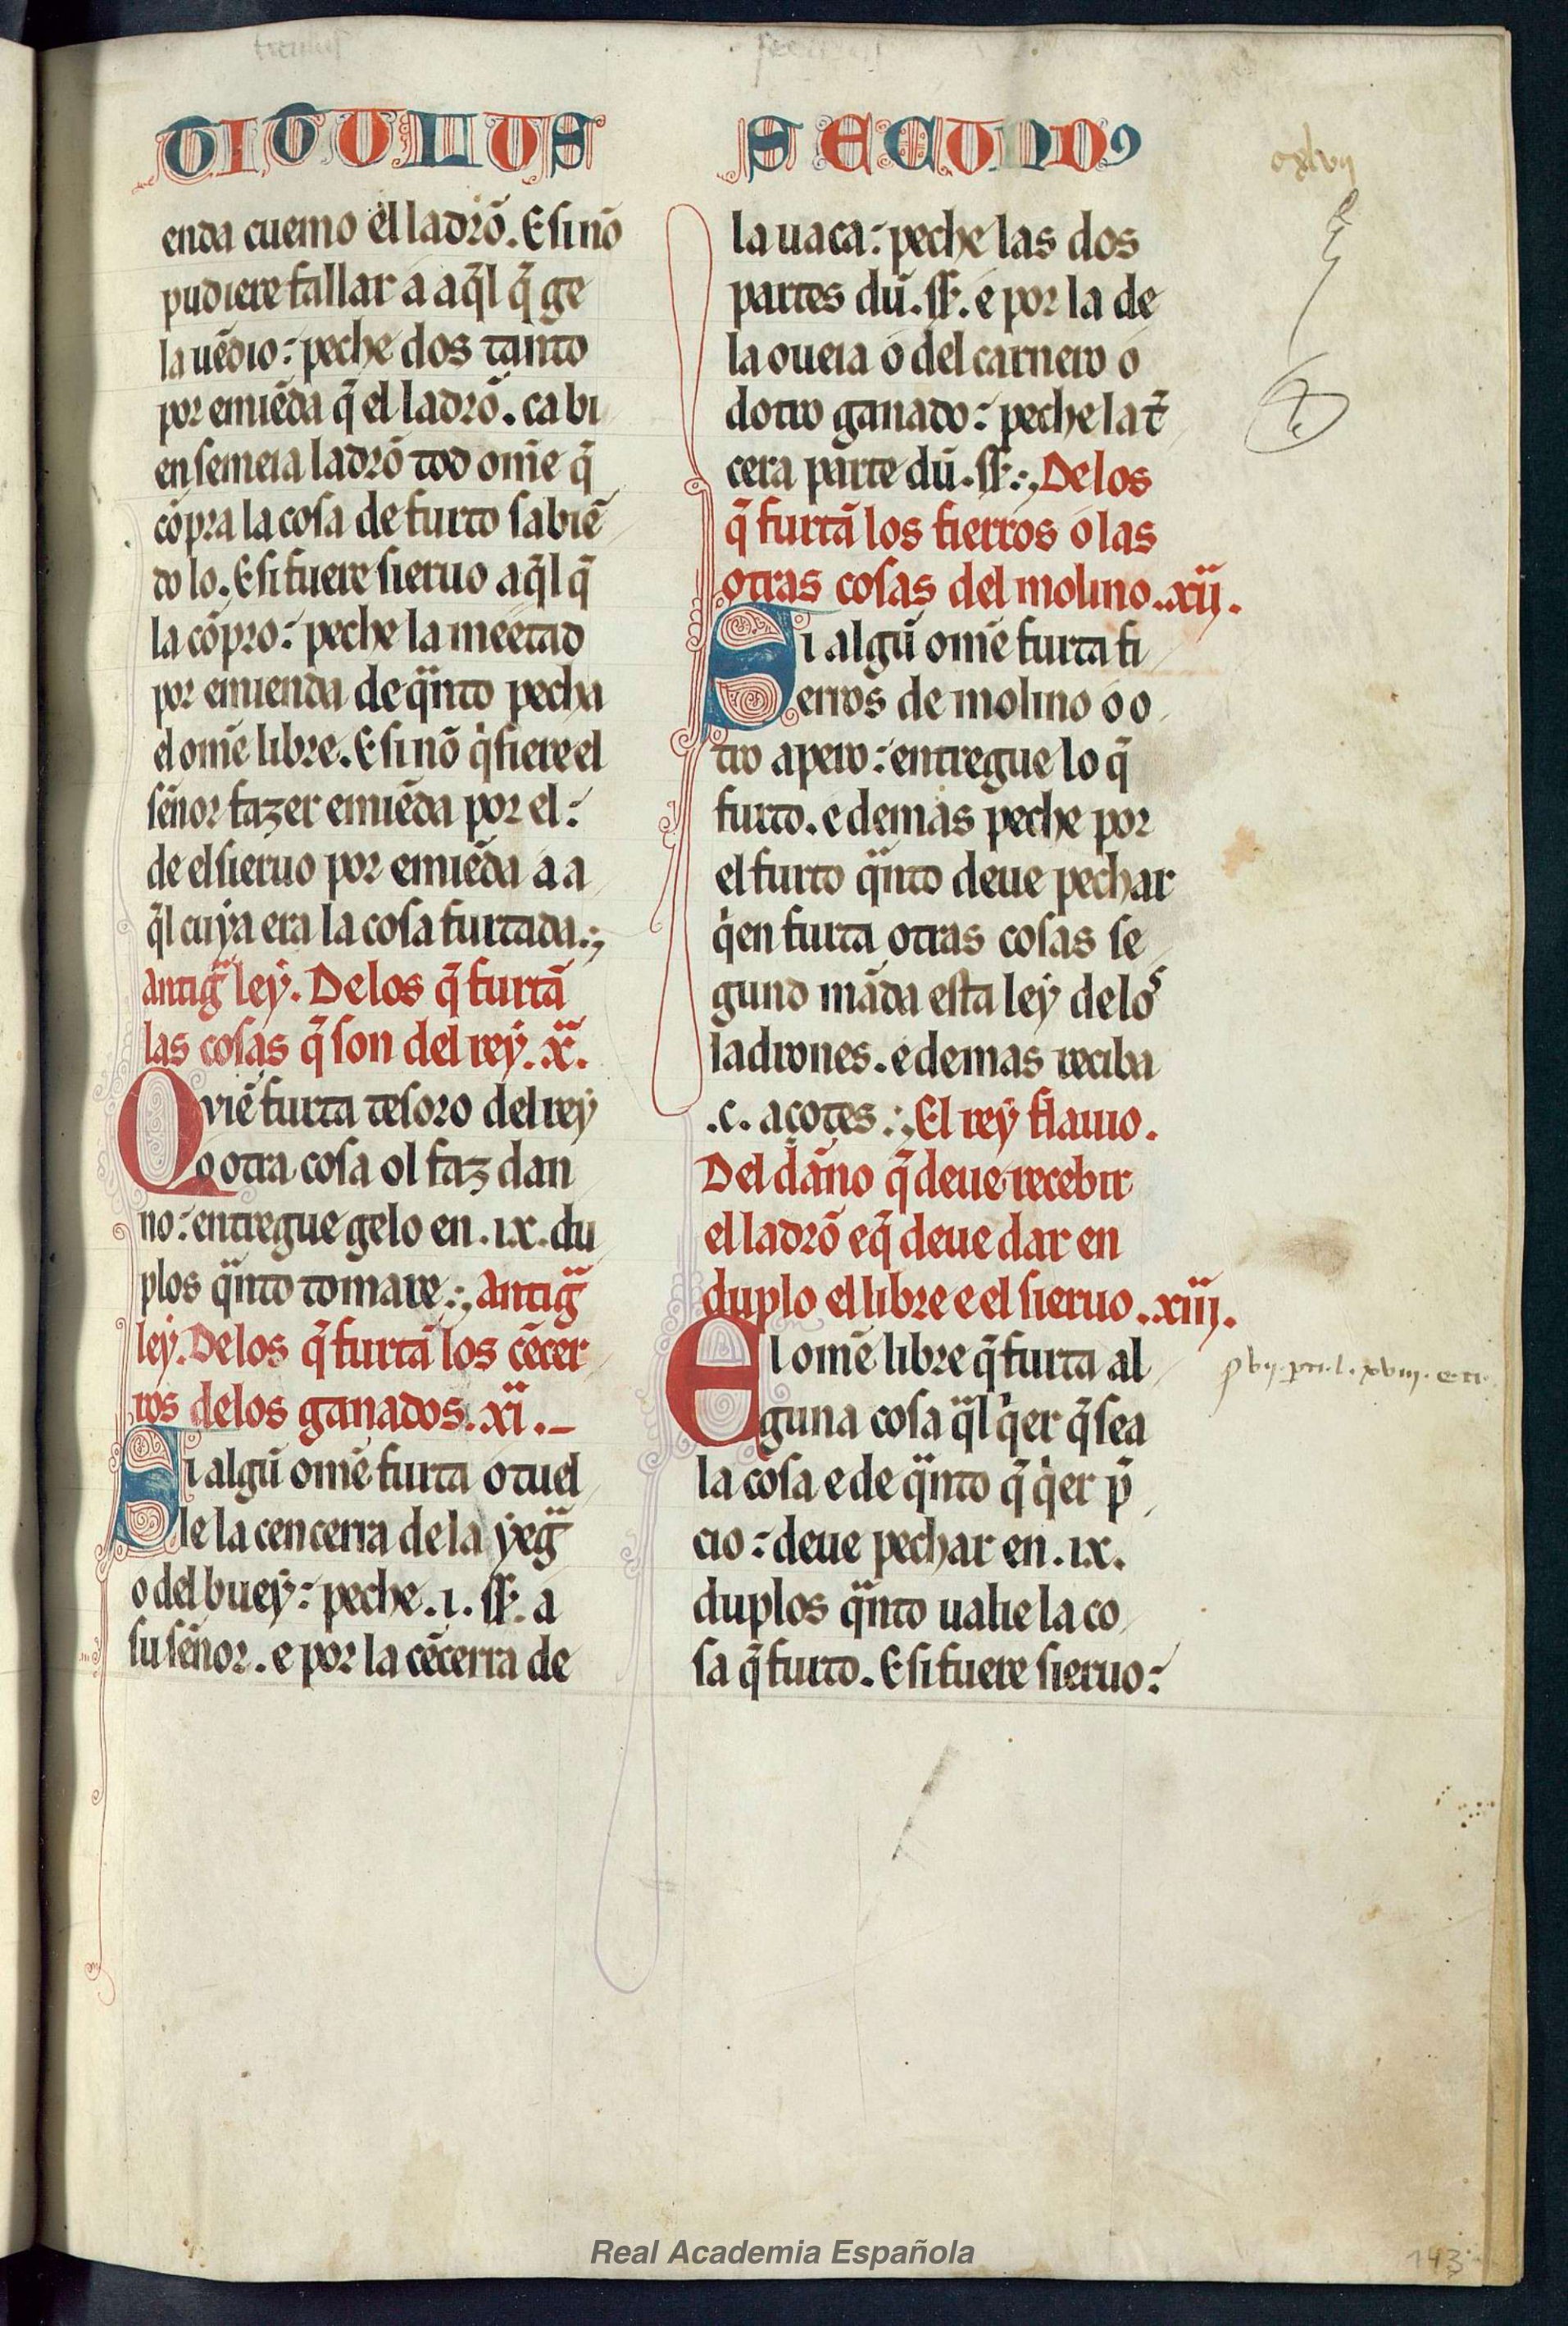 TITULUS SECUNDꝰ
enda cuemo el ladrõ. E si nõ
pudiere fallar a aq̃l q̃ ge
la uẽdio: peche dos tanto
por emiẽda q̃ el ladrõ. ca bi
en semeia ladrõ tod omẽ q̃
cõpra la cosa de furto sabiẽ
do lo. E si fuere sieruo aq̃l q̃
la cõpro: peche la meetad
por emienda de qͣnto pecha
el omẽ libre. E si nõ qͥsiere el
sẽnor fazer emiẽda por el:
de el sieruo por emiẽda a a
q̃l cuya era la cosa furtada.;
antigͣ ley. De los q̃ furtã
las cosas q̃ son del rey. x̃.
Qviẽ furta tesoro del rey
o otra cosa ol faz dan
no: entregue gelo en .ix. du
plos qͣnto tomare.; antigͣ
ley. De los q̃ furtã los cẽcer
ros de los ganados. xi. _
Si algũ omẽ furta o tuel
le la cencerra de la yegͣ
o del buey: peche .i. ſſ. a
su sẽnor. e por la cẽcerra de
la uaca: peche las dos
partes dũ. ſſ. e por la de
la oueia o del carnero o
dotro ganado: peche la t̃
cera parte dũ. ſſ.; De los
q̃ furtã los fierros o las
otras cosas del molino..xii.
Si algũ omẽ furta fi
erros de molino o o
tro apero: entregue lo q̃
furto. e demas peche por
el furto qͣnto deue pechar
qͥen furta otras cosas se
gund mãda esta ley de loˢ
ladrones. e demas reciba
.c. açotes.; El rey flauio.
Del dãno q̃ deue recebir
el ladrõ e q̃ deue dar en
duplo el libre e el sieruo..xiii.
El omẽ libre q̃ furta al
guna cosa qͣl qͥer q̃ sea
la cosa e de qͣnto q̃ qͥer p̃
cio: deue pechar en .ix.
duplos qͣnto ualie la co
sa q̃ furto. E si fuere sieruo:
143
Real Academia Española